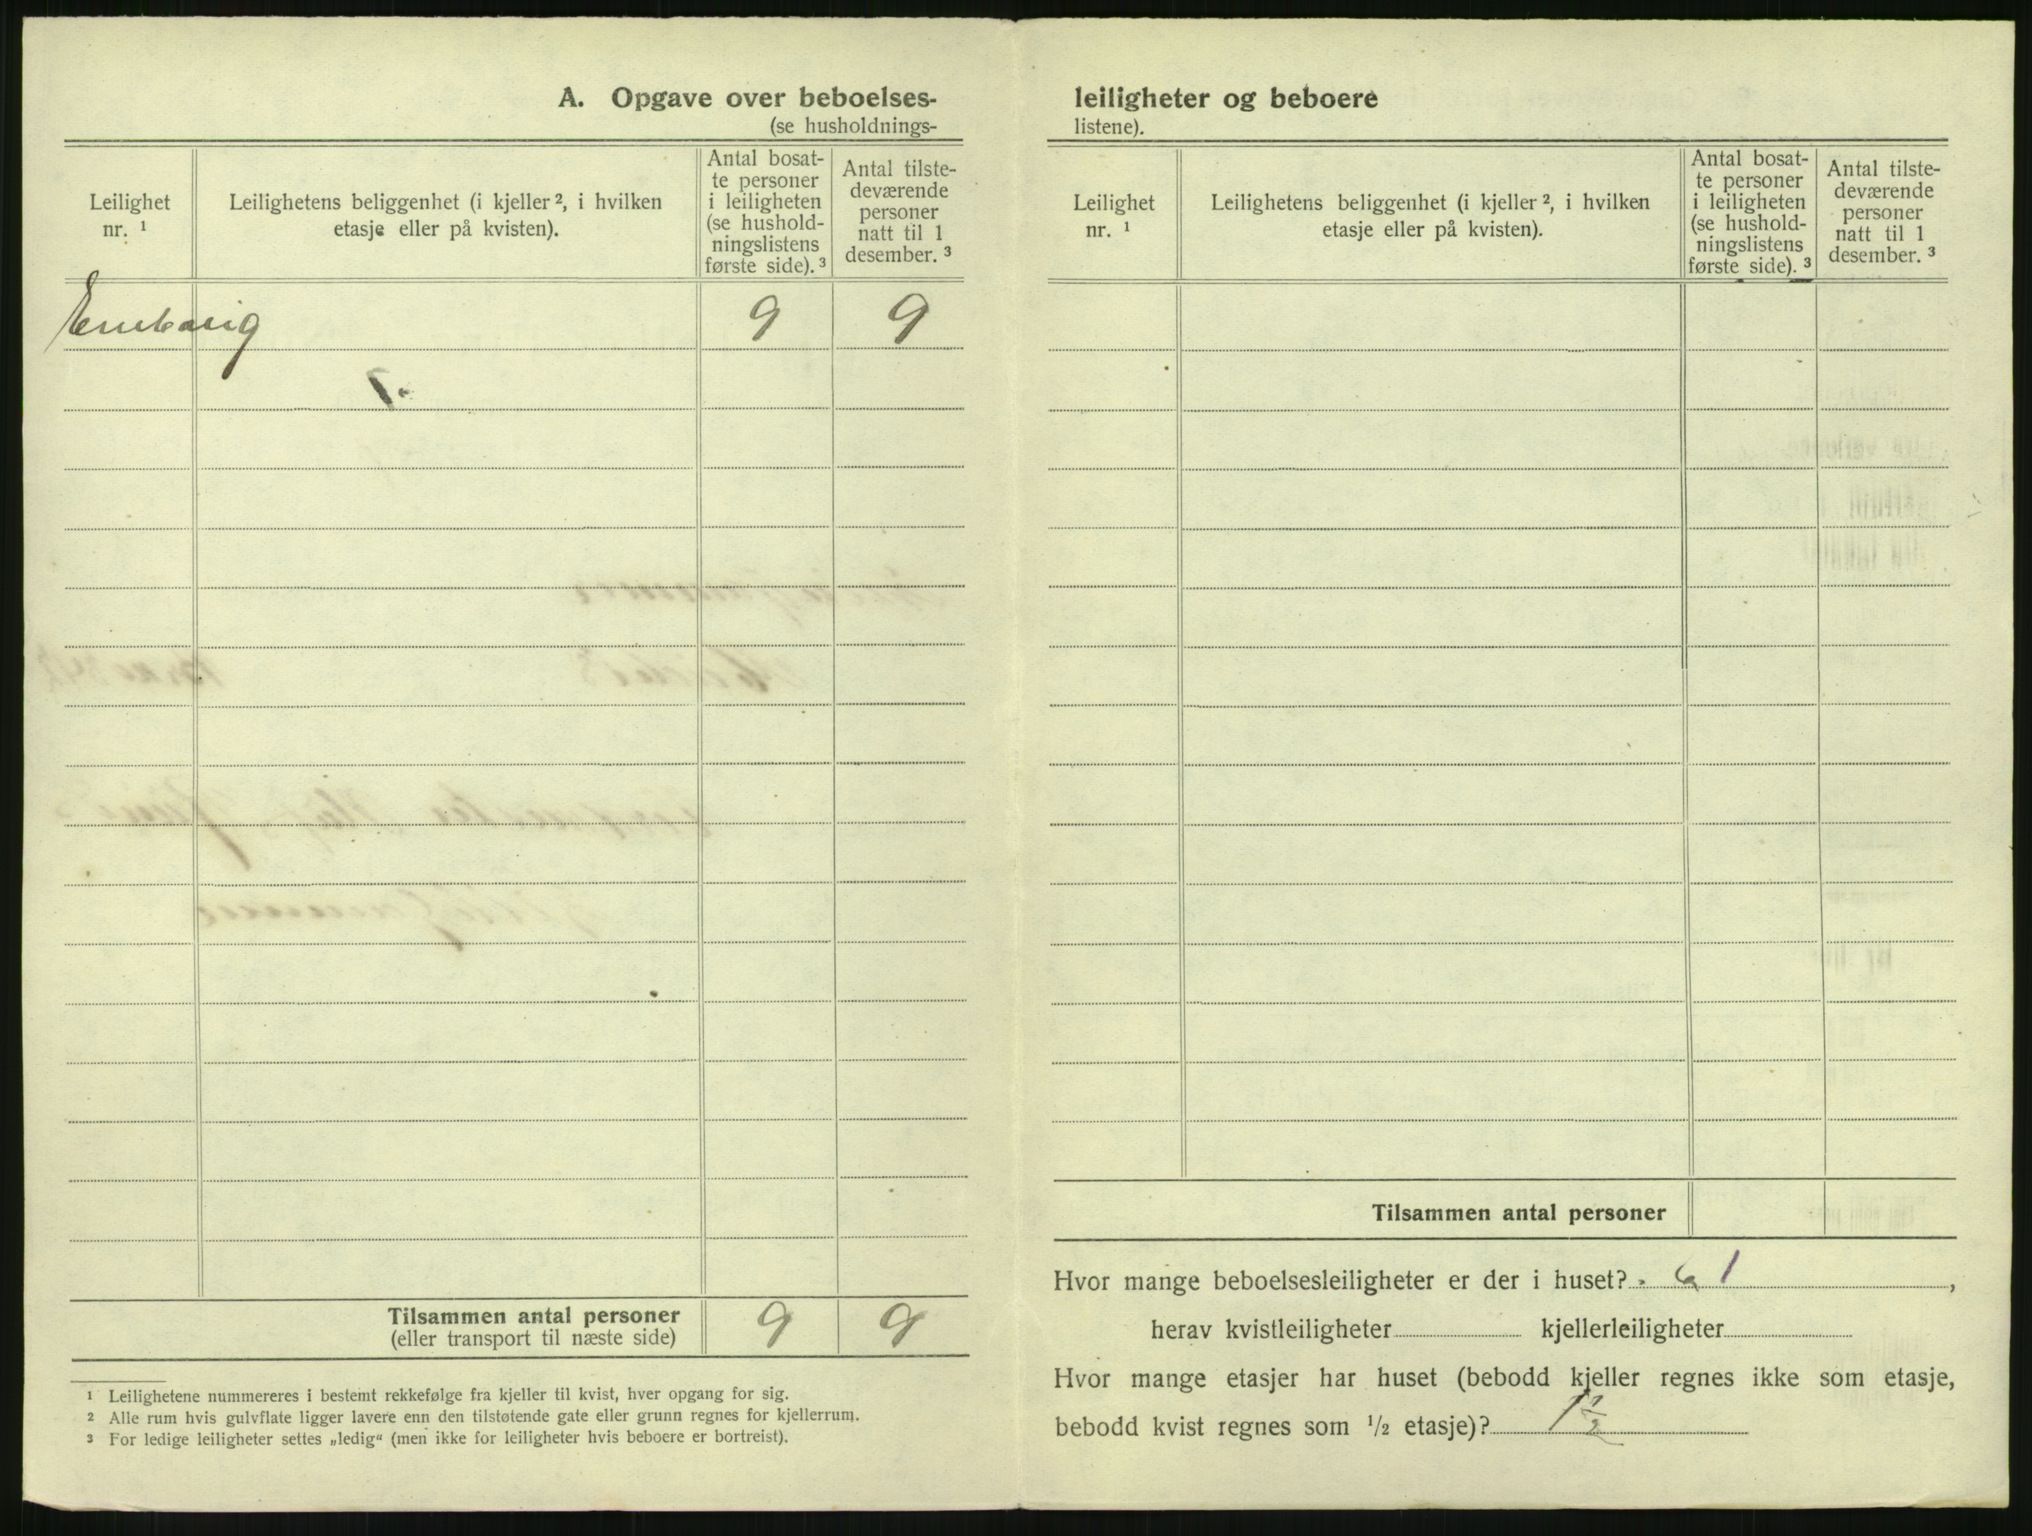 A. Opgave over beboelses-
(se husholdnings-
Leilighet nr. ¹
Leilighetens beliggenhet (i kjeller ², i hvilken etasje eller på kvisten).
Antal bosat-
te personer
i leiligheten
(se hushold-
ningslistens
første side). ³
Antal tilste-
deværende
personer
natt til 1
desember. ³
9 9
Tilsammen antal personer 9 9
(eller transport til næste side)
¹ Leilighetene nummereres i bestemt rekkefølge fra kjeller til kvist, hver opgang for sig.
² Alle rum hvis gulvflate ligger lavere enn den tilstøtende gate eller grunn regnes for kjellerrum.
³ For ledige leiligheter settes „ledig“ (men ikke for leiligheter hvis beboere er bortreist).
leiligheter og beboere
listene).
Leilighet nr. ¹
Leilighetens beliggenhet (i kjeller ², i hvilken etasje eller på kvisten).
Antal bosat-
te personer
i leiligheten
(se hushold-
ningslistens
første side). ³
Antal tilste-
deværende
personer
natt til 1
desember. ³
Tilsammen antal personer
Hvor mange beboelsesleiligheter er der i huset? 1,
herav kvistleiligheter kjellerleiligheter
Hvor mange etasjer har huset (bebodd kjeller regnes ikke som etasje,
bebodd kvist regnes som ½ etasje)? 1½